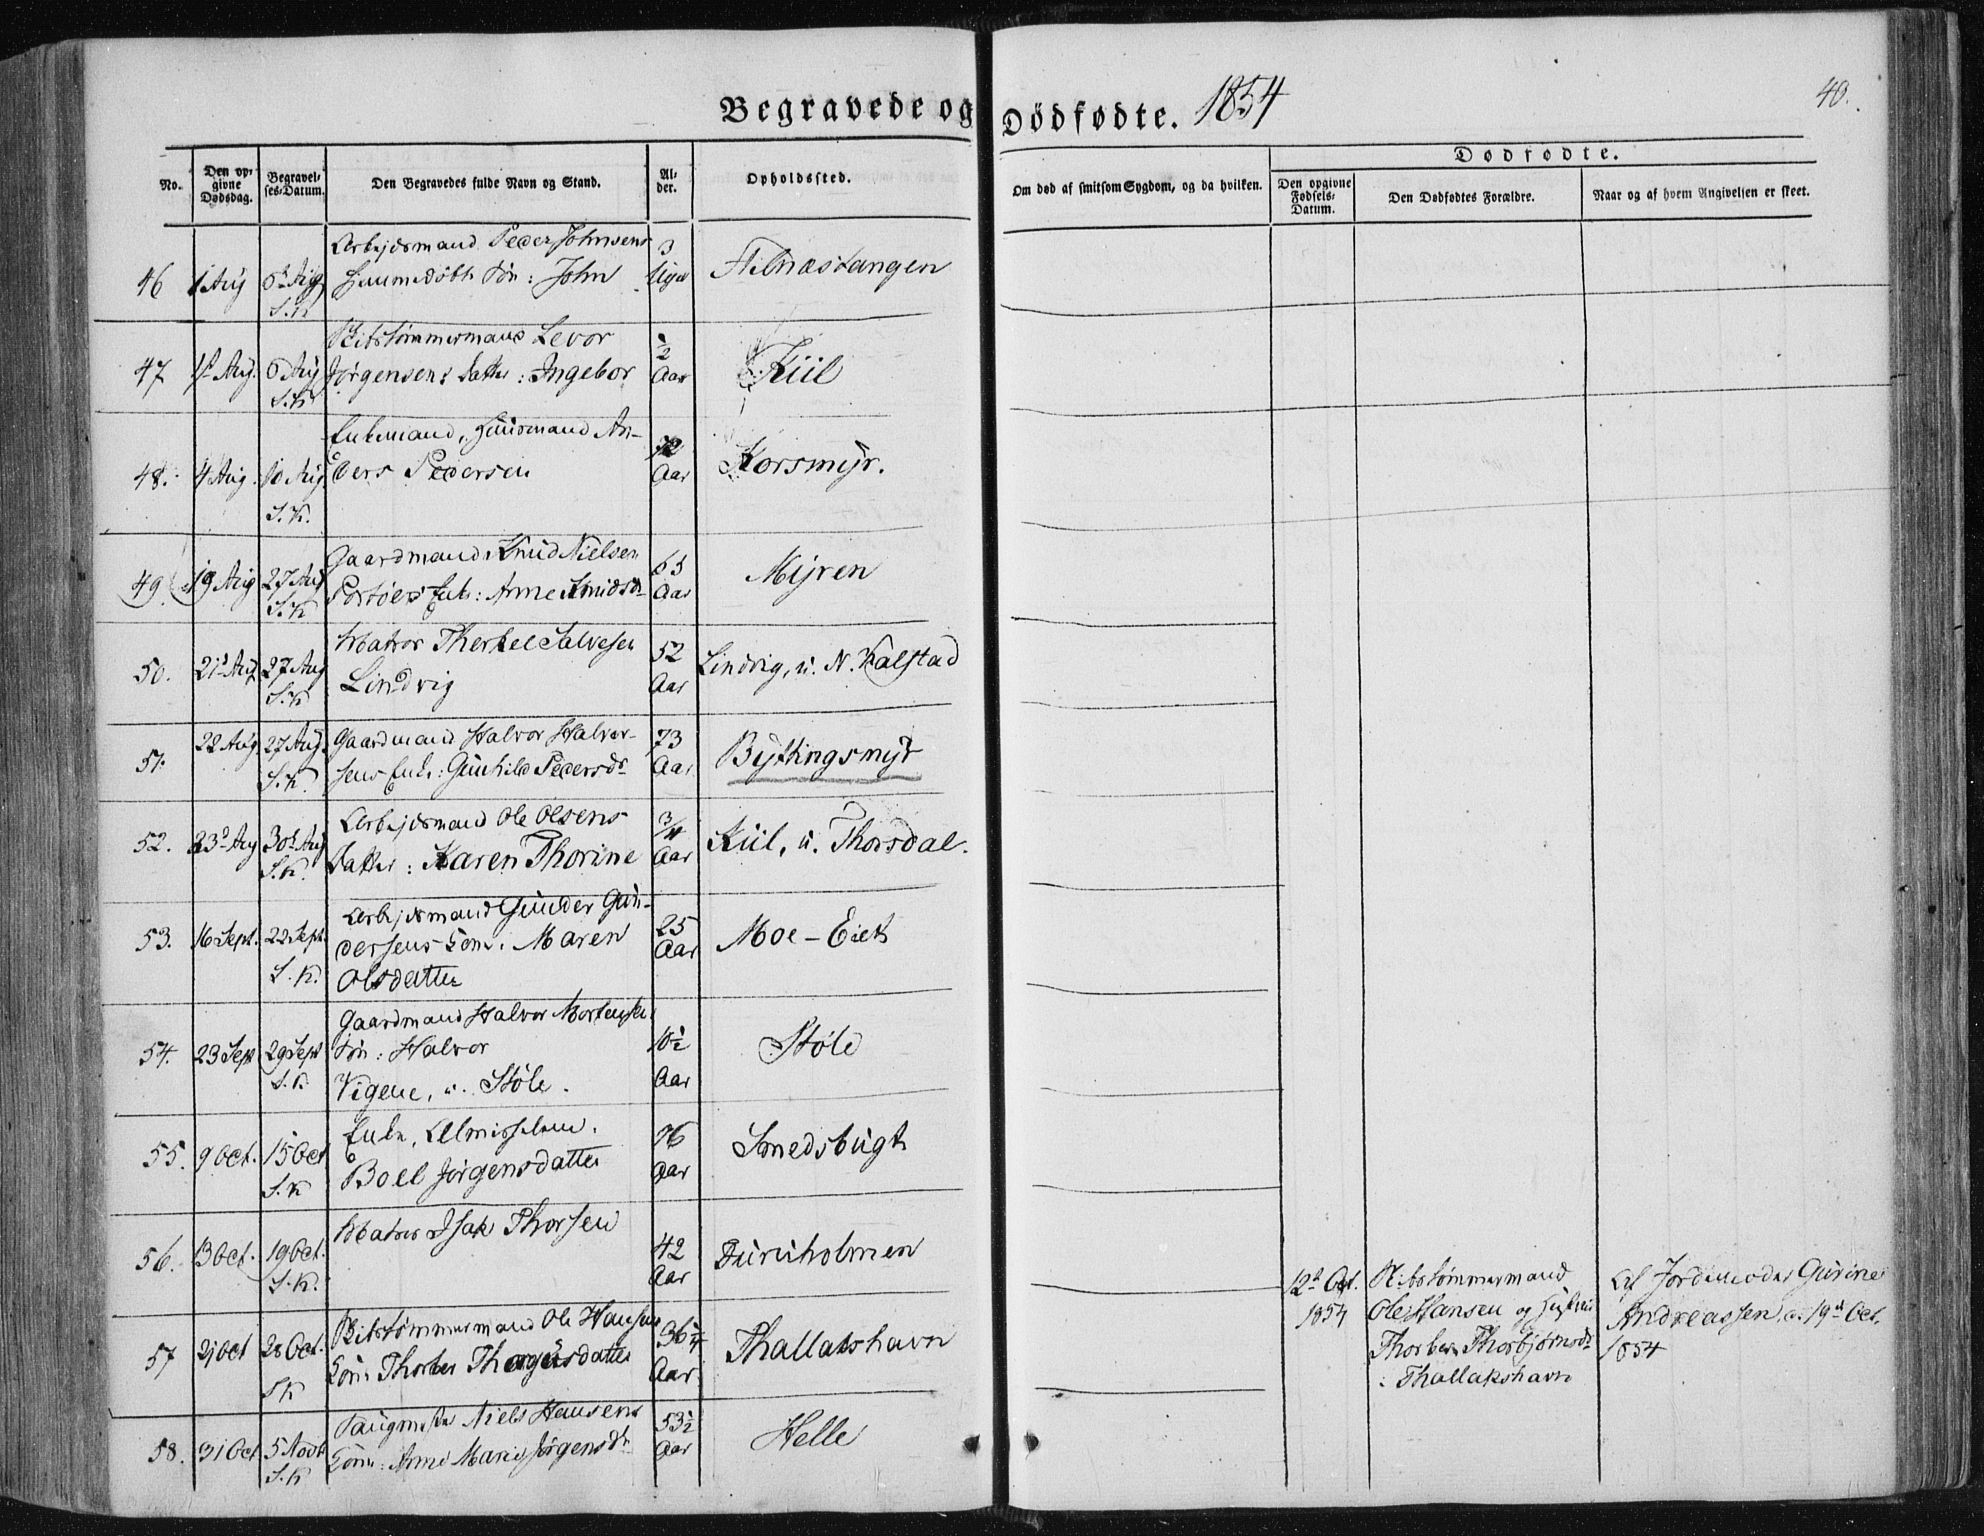 Begravede og Dödfødte. 1854
40.
No. Den opgivne Dødsdag. Begravelses-Datum. Den Begravedes fulde Navn og Stand. Alder. Opholdssted. Om død af smitsom Sygdom, og da hvilken. Den opgivne Fødsels-Datum. Den Dødfødtes Forældre. Naar og af hvem Angivelsen er skeet.
Dødfødte.
Arbejdsmand Peder Johnsens 3
46 1 Aug 6 Aug hjemmedøbte Søn: John Uger
S.K
Skibstømmermand Levor ½
47 1st Aug. 6 Aug Jørgensens Datter: Ingebor Aar Kiil
S.K
Enkemand, Huusmand An- 72
48. 4 Aug. 10 Aug. ders Pedersen Aar Korsmyr.
S.K.
Gaardmand Knud Nielsen 65
49. 19 Aug 27 Aug Enke: Anne Knudsdr Aar Myren
S.K
Matros Therkel Salvesen 52
50. 21 Aug 27 Aug Lindvig Aar Lindvig, u. N. Kalstad
S.K
22 Aug. 27 Aug. Gaardmand Halvor Halvor- 73
51. S.K. sens Enke: Gunhild Pedersdr Aar Byttingsmyr
Arbejdsmand Ole Olsens 3/4
52. 23d Aug 30t Aug Datter: Karen Thorine Aar Kiil, u. Thorsdal.
S.K.
Arbejdsmand Gunder Gun-
53. 16 Sept. 22 Sept. dersens Kone. Maren 25 Aar Moe-Eiet
S.K. Olsdatter
Gaardmand Halvor
54. 23 Sept 29 Sept Søn: Halvor 10½ Støle
S.K. Vigene, u. Støle. Aar
Enke, Almisselem. 76
55. 9 Oct. 15 Oct Boel Jørgensdatter Aar Smedsbugt
S.K
Matros Isak Thorsen
56. 13 Oct. 19 Oct. 42 Furuholmen
S.K. Aar
Skibstømmermand Ole Hansens 36¼
57 21 Oct 28 Oct. Kone Thorber Aar Thallakshavn
SK
Niels Hansens 53½
58. 31 Oct 5 Novb Kone: Anne Marie Jørgensdr Aar Helle
S.K
12t Oct. Skibstømmermand Af Jordemoder Gurine
1854 Ole Hansen og Hustrue Andreassen, 19d Oct.
Thorber Thorbjørnsdr 1854
: Thallakshavn